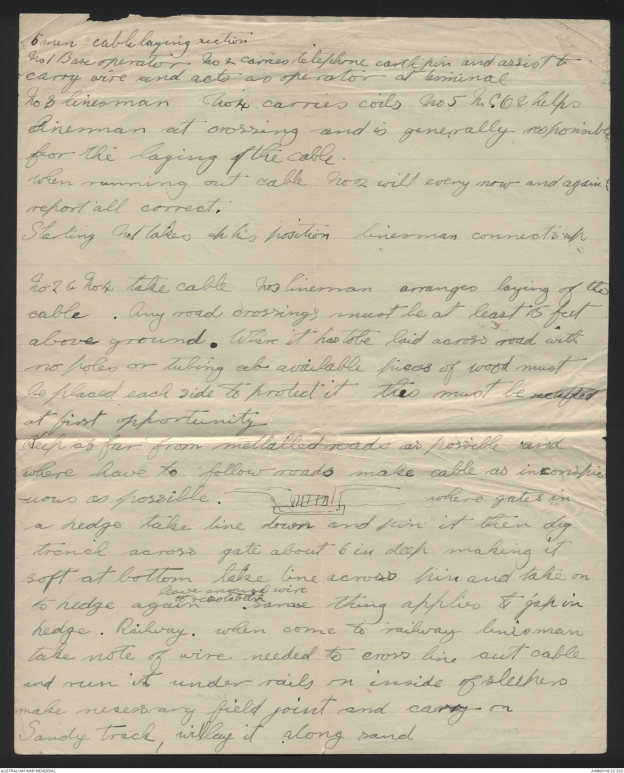 6 men cable laying section
No 1 Base operator No 2 carries telephone, earth pin and assist to
carry wire and acts as operator at terminal
No 3 linesman No 4 carries coils No 5 N.C.O & helps
linesman at crossing and is generally responsible
for the laying of the cable.
When running out cable No 2 will every now and again
report all correct.
Starting No 1 takes up his position linesman connects up
No 2 & No 4 take cable No 3 lineman arranges laying of the
cable. Any road crossings must be at least 15 feet
above ground. Where it has to be laid across road with
no poles or tubing are available pieces of wood must
be placed each side to protect it this must be rectified
at first opportunity
Keep as far from mettalled roads as possible and
where have to follow roads make cable as inconspic
uous as possible. METTAL where gates in
a hedge take line down and pin it then dig
trench across gate about 6 in deep making it
soft at bottom take line across pin and take on
leave enough wire
to hedge again same thing applies to gap in
hedge. Railway. when come to railway linesman
take note of wire needed to cross line cut cable
and run it under rails on inside of sleepers
make necessary field joint and carry on
Sandy track, will lay it along sand
AUSTRALIAN WAR MEMORIAL